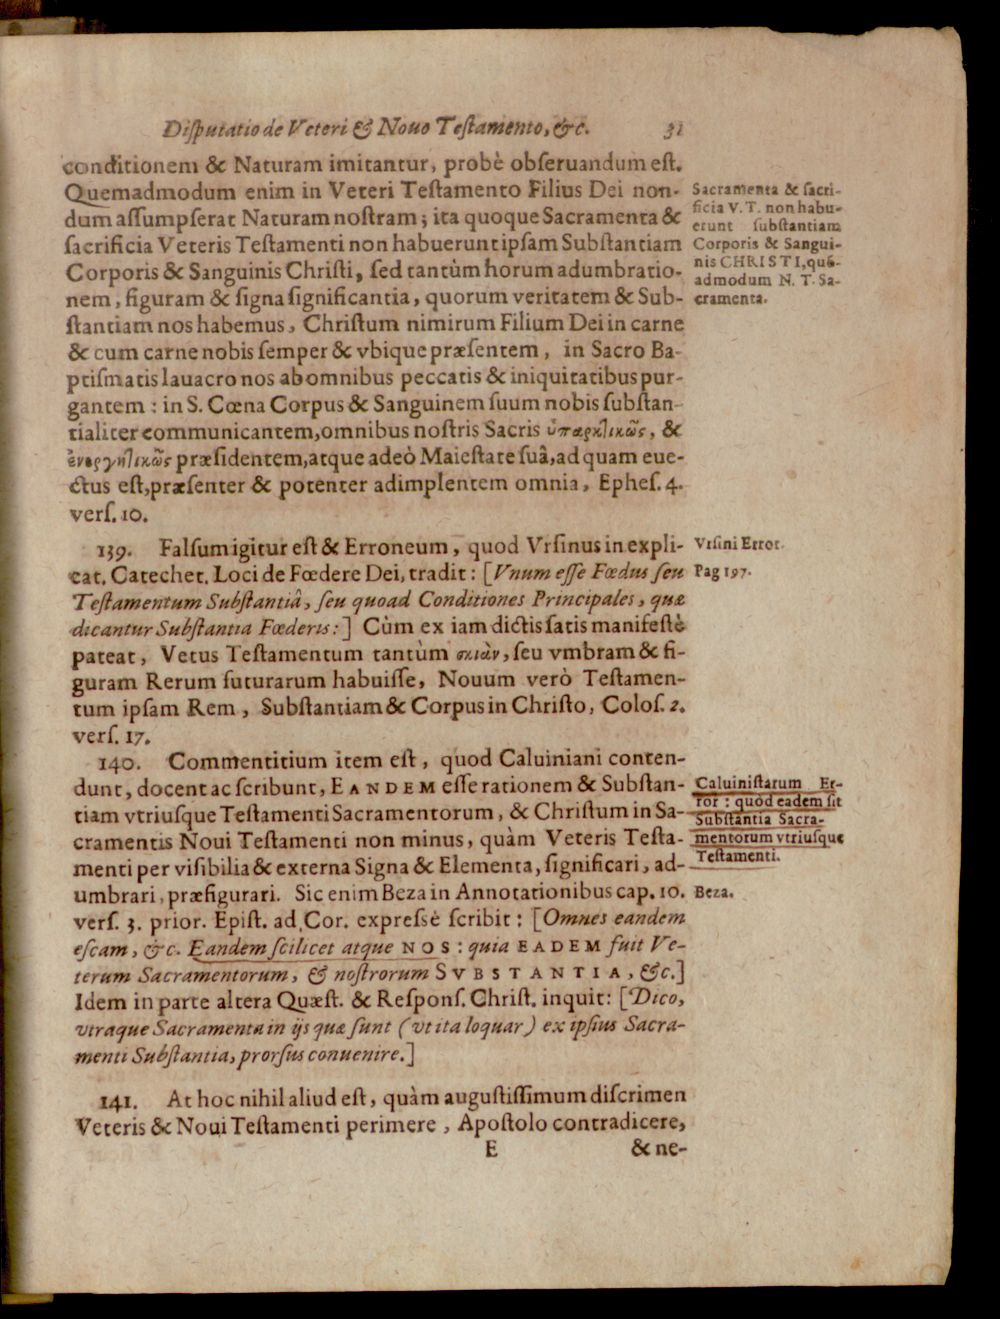 Disputatio de Veteri & Nouo Testamento, &c. 31
conditionem & Naturam imitantur, probè obseruandum est.
Quemadmodum enim in Veteri Testamento Filius Dei non-
dum assumpserat Naturam nostram; ita quoque Sacramenta &
sacrificia Veteris Testamenti non habuerunt ipsam Substantiam
Corporis & Sanguinis Christi, sed tantùm horum adumbratio-
nem, figuram & signa significantia, quorum veritatem & Sub-
stantiam nos habemus, Christum nimirum Filium Dei in carne
& cum carne nobis semper & vbique præsentem, in Sacro Ba-
ptismatis lauacro nos ab omnibus peccatis & iniquitatibus pur-
gantem: in S. Cœna Corpus & Sanguinem suum nobis substan-
tialiter communicantem, omnibus nostris Sacris ὑπαρκλικῶς, &
ἐνεργητικῶς præsidentem, atque adeò Maiestate suâ, ad quam eue-
ctus est, præsenter & potenter adimplentem omnia, Ephes. 4.
vers. 10.
Sacramenta & sacri-
ficia V. T. non habu-
erunt substantiam
Corporis & Sangui-
nis CHRISTI, quẽ-
admodum N. T. Sa-
cramenta.
139. Falsum igitur est & Erroneum, quod Vrsinus in expli-
cat. Catechet. Loci de Fœdere Dei, tradit: [Vnum esse Fœdus seu
Testamentum Substantiâ, seu quoad Conditiones Principales, quæ
dicantur Substantia Fœderis:] Cùm ex iam dictis satis manifestè
pateat, Vetus Testamentum tantùm σκιὰν, seu vmbram & fi-
guram Rerum futurarum habuisse, Nouum verò Testamen-
tum ipsam Rem, Substantiam & Corpus in Christo, Colos. 2.
vers. 17.
Vrsini Error.
Pag 197.
140. Commentitium item est, quod Caluiniani conten-
dunt, docent ac scribunt, EANDEM esse rationem & Substan-
tiam vtriusque Testamenti Sacramentorum, & Christum in Sa-
cramentis Noui Testamenti non minus, quàm Veteris Testa-
menti per visibilia & externa Signa & Elementa, significari, ad-
umbrari, præfigurari. Sic enim Beza in Annotationibus cap. 10.
vers. 3. prior. Epist. ad Cor. expressè scribit: [Omnes eandem
escam, &c. Eandem scilicet atque NOS: quia EADEM fuit Ve-
terum Sacramentorum, & nostrorum SVBSTANTIA, &c.]
Idem in parte altera Quæst. & Respons. Christ. inquit: [Dico,
vtraque Sacramenta in ijs quæ sunt (vt ita loquar) ex ipsius Sacra-
menti Substantia, prorsus conuenire.]
Caluinistarum Er-
ror: quòd eadem sit
Substantia Sacra-
mentorum vtriusque
Testamenti.
Beza.
141. At hoc nihil aliud est, quàm augustissimum discrimen
Veteris & Noui Testamenti perimere, Apostolo contradicere,
E & ne-